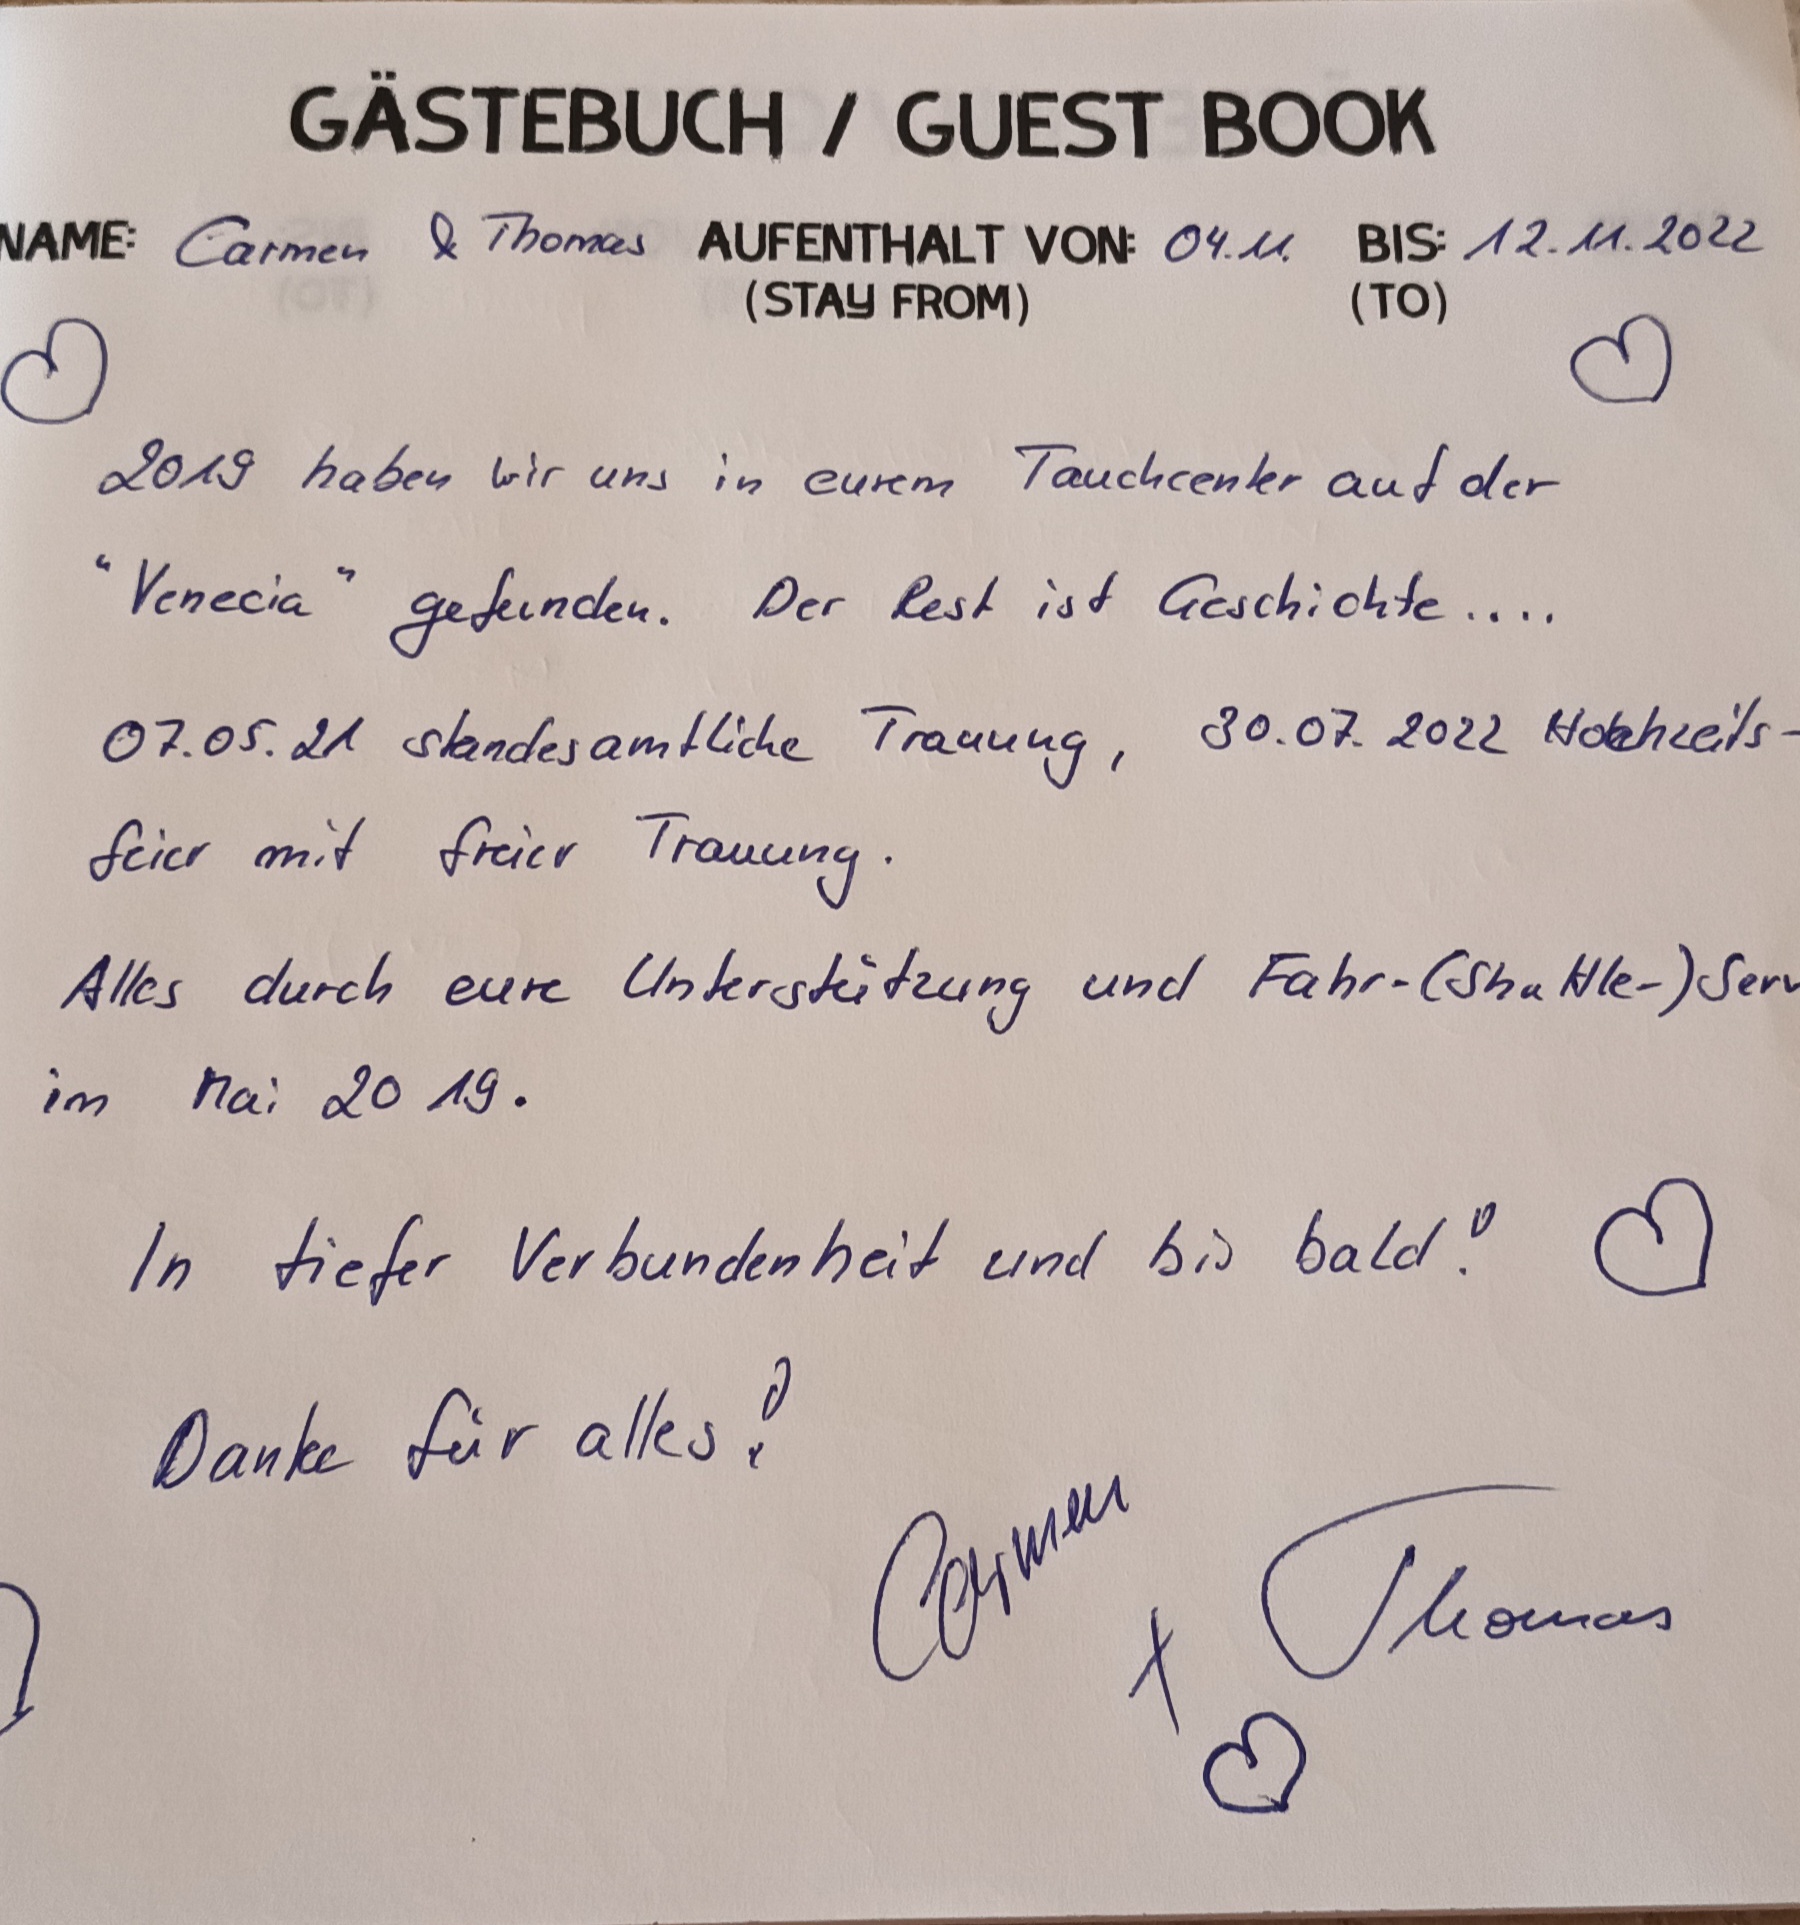 GÄSTEBUCH / GUEST BOOK
NAME: Carmen & Thomas AUFENTHALT VON: 04.11. BIS: 12.11.2022
(STAY FROM) (TO)
2019 haben wir uns in eurem Tauchcenter auf der
"Venecia" gefunden. Der Rest ist Geschichte....
07.05.21 standesamtliche Trauung, 30.07.2022 Hochzeits-
feier mit freier Trauung.
Alles durch eure Unterstützung und Fahr-(Shuttle-)Serv
im Mai 2019.
In tiefer Verbundenheit und bis bald!
Danke für alles!
Carmen
+ Thomas